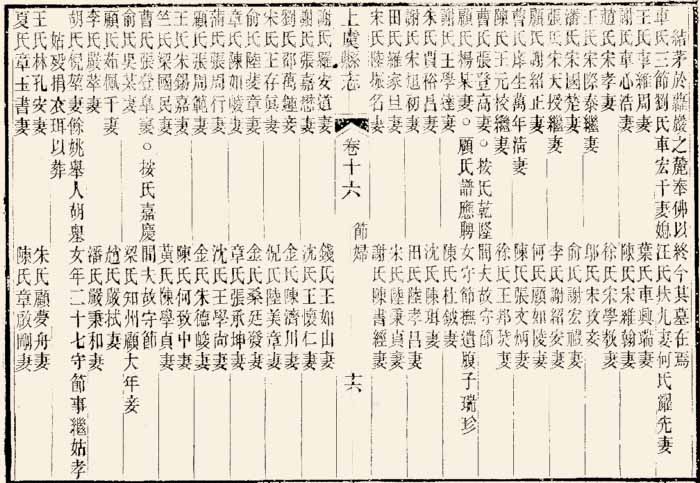 結茅於蘿巖之麓奉佛以終今其墓在焉
車氏三節劉氏車宏千妻媳汪氏扶九妻何氏耀先妻
王氏車維周妻 葉氏車興瑞妻
謝氏車心浩妻 陳氏宋維翰妻
趙氏宋孝妻 徐氏宋學敎妻
王氏宋際泰繼妻 鄔氏宋玫妾
潘氏宋國楚妻 俞氏謝宏嘏妻
張氏宋天授繼妻 李氏謝紹安妻
顧氏謝紹正妻 何氏顧如陵妻
曹氏庠生萬年清妻 陳氏張文炳妻
陳氏王元校繼妻 徐氏王妻
曹氏張登高妻○按氏乾隆間夫故守節
顧氏楊杲妻○顧氏諧應聘女守節撫遺腹子瑞珍
謝氏王學達妻 陳氏杜鉞妻
朱氏賈裕昌妻 沈氏陳珥妻
謝氏宋旭初妻 田氏陸孝昌妻
田氏羅家旦妻 宋氏陸秉貞妻
宋氏陸名妻 謝氏陳書經妻
上虞縣志 卷十六 節婦 十六
謝氏羅安道妻 錢氏王如山妻
謝氏張嘉懋妻 沈氏王懷仁妻
劉氏邵萬鍾妾 金氏陳濟川妻
宋氏王存眞妻 倪氏陸美章妻
俞氏陸斐章妻 金氏桑廷發妻
章氏陳如峻妻 章氏張承坤妻
蒲氏張周行妻 沈氏王學向妻
顧氏張周範妻 金氏朱德峻妻
王氏朱錫嘉妻 陳氏何致中妻
竺氏梁國民妻 黃氏陳學貞妻
曹氏張登皐妻○按氏嘉慶間夫故守節
俞氏吳某妻 梁氏知州顧大年妾
顧氏茹佩千妻 趙氏嚴拭妻
李氏嚴萃妻 潘氏嚴秉和妻
胡氏倪堃妻餘姚舉人胡女年二十七守節事繼姑孝
姑歿捐衣珥以葬
王氏林孔安妻 朱氏顧夢舟妻
夏氏章玉書妻 陳氏章啟剛妻